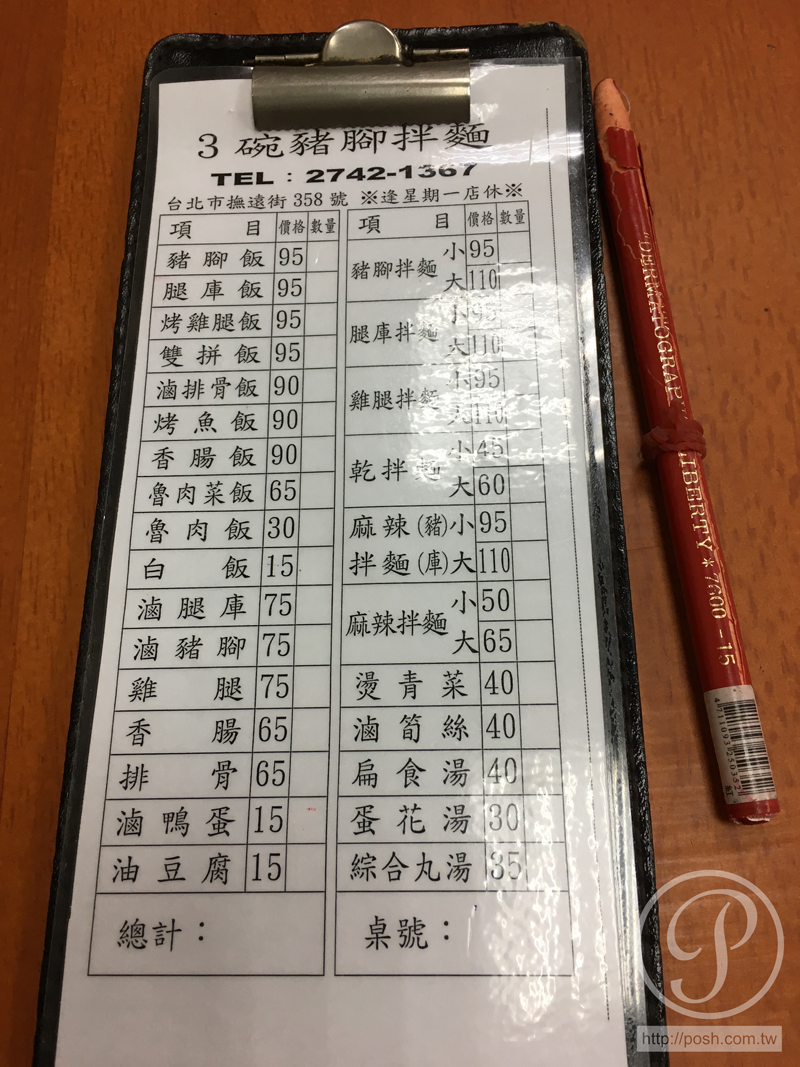 3 碗豬腳拌麵
TEL：2742-1367
台北市撫遠街 358 號 ※逢星期一店休※
項 目 價格 數量
豬腳飯 95
腿庫飯 95
烤雞腿飯 95
雙拼飯 95
滷排骨飯 90
烤魚飯 90
香腸飯 90
魯肉菜飯 65
魯肉飯 30
白飯 15
滷腿庫 75
滷豬腳 75
雞腿 75
香腸 65
排骨 65
滷鴨蛋 15
油豆腐 15
總計：
項 目 價格 數量
豬腳拌麵 小 95
大 110
腿庫拌麵 小 95
大 110
雞腿拌麵 小 95
大 110
乾拌麵 小 45
大 60
麻辣(豬)小 95
拌麵(庫)大 110
麻辣拌麵 小 50
大 65
燙青菜 40
滷筍絲 40
扁食湯 40
蛋花湯 30
綜合丸湯 35
桌號：
LIBERTY * 7600 - 15
P
http://posh.com.tw